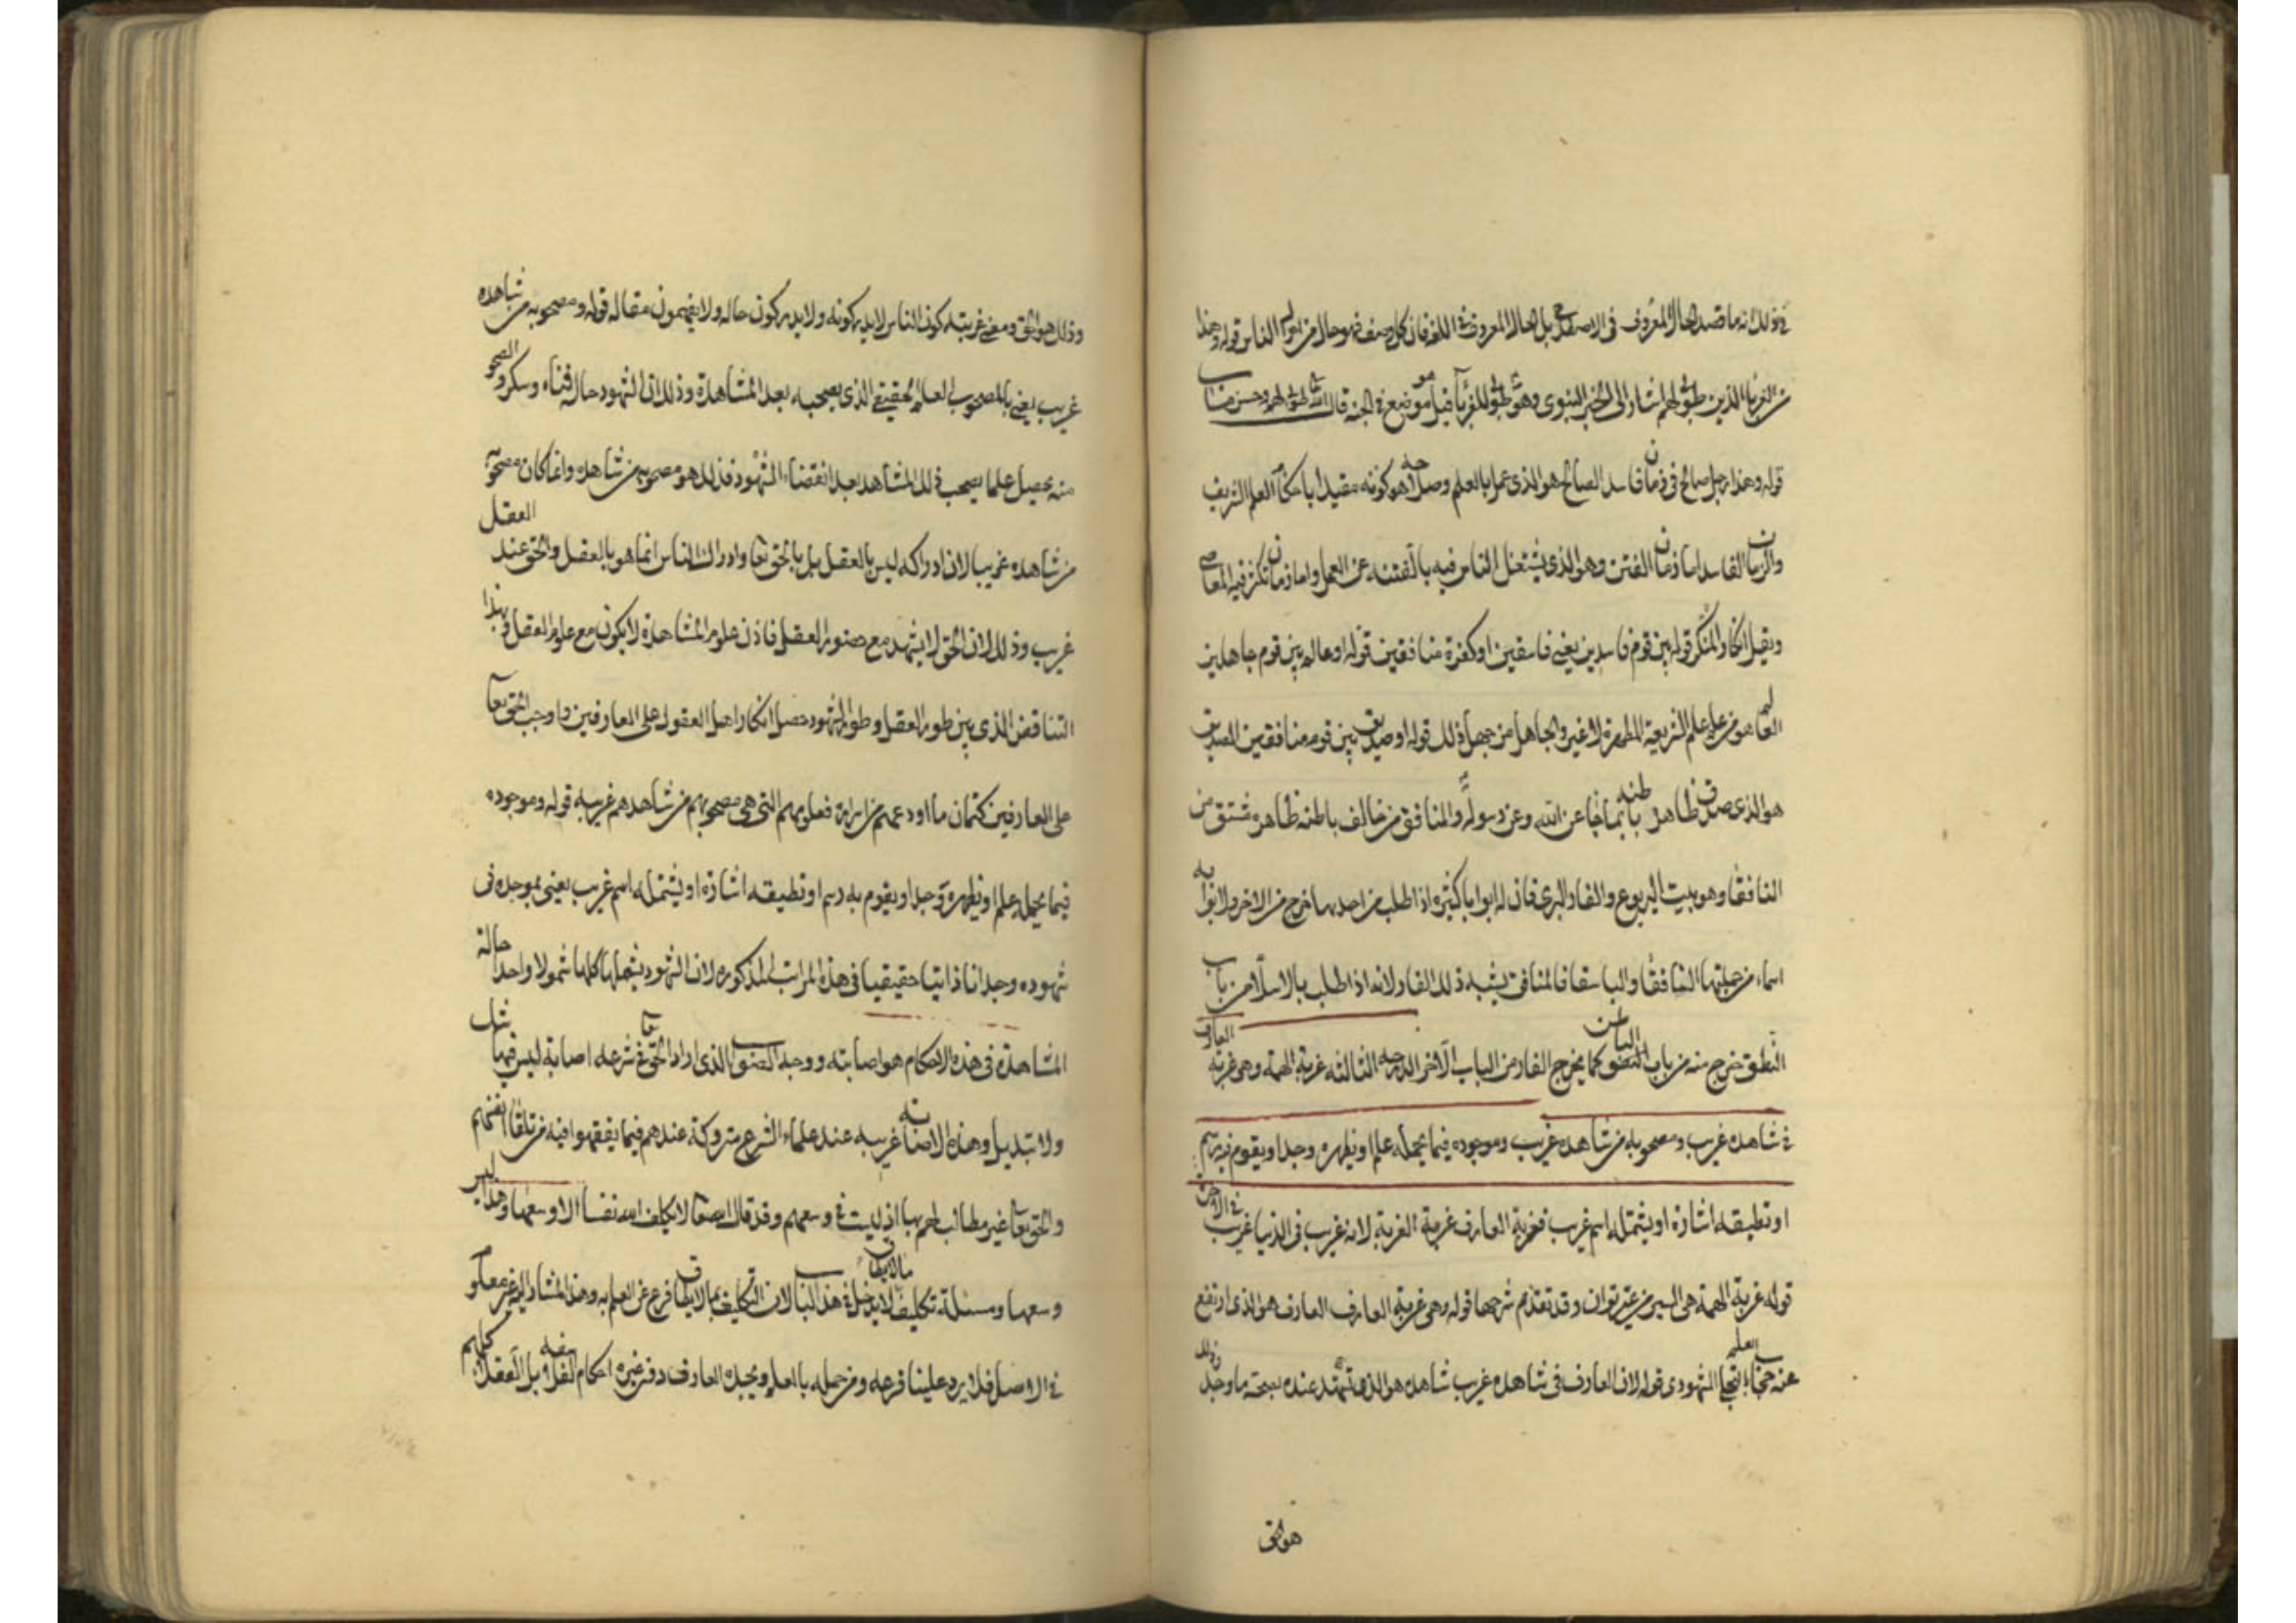 في ذلك انه ما قصد الحال المعروف فى الاصطلاح بل الحال المعروف فى اللغة فان كل وصف فهو حال من احوال الناس قوله وهذا
من الغرباء الذين طوبى لهم اشار الى الخبر النبوى وهو طوبى للغرباء قيل هو موضع فى الجنة قال الله تعالى طوبى لهم وحسن مآب
قوله وهذا رجل صالح فى زمان فاسد الصالح هو الذى عمل بالعلم وصلاحه هو كونه مقيدا باحكام العلم الشريف
والزمان الفاسد اما زمان الفتن وهو الذى يشتغل الناس فيه بالفتنة عن العمل واما زمان تكثر فيه المعاصى
ويقل انكار المنكر قوله بين قوم فاسدين يعنى فاسقين او كفرة منافقين قوله او عالم بين قوم جاهلين
العالم هو من علم علم الشريعة المطهرة لا غير والجاهل من جهل ذلك قوله او صديق بين قوم منافقين الصديق
هو الذى صدق ظاهره باطنه بما جاء عن الله وعن رسوله والمنافق من خالف باطنه ظاهره مشتق من
النافقا وهو بيت اليربوع والفار البرى فان له ابوابا كثيره اذا طلب من احدها خرج من الاخر ولابوابه
اسماء من جملتها النافقا والباسقا فالمنافق يشبه ذلك الفار لانه اذا طلب بالاسلام من باب
النطق خرج منه من باب الباطن كما يخرج الفار من الباب الآخر الدرجه الثالثه غربة الهمة وهى غربة العارف
فى شاهده غريب ومصحوبه من شاهده غريب وموجوده فيما يحمله علم او يظهره وجد او يقوم به رسم
او تطيقه اشارة او يشمله اسم غريب فغربة العارف غربة الغربة لانه غريب فى الدنيا غريب فى الآخرة
قوله غربة الهمة هى السير من غير توان وقد تقدم شرحها قوله وهى غربة العارف العارف هو الذى ارتفع
عنه حجاب العلم بالتجلى الشهودى قوله لان العارف فى شاهده غريب شاهده هو الذى يشهد عنده بصحة ما وجد وذلك
هو الحق
وذلك هو الحق ومعنى غربته كون الناس لا يدركونه ولا يدركون حاله ولا يفهمون مقاله قوله ومصحوبه من شاهده
غريب يعنى بالمصحوب العلم الحقيقى الذى يصحبه بعد المشاهدة وذلك ان الشهود حاله فناء وسكر والصحو
منه يحصل علما يصحب ذلك المشاهد بعد انقضاء الشهود فذلك هو مصحوبه من شاهده وانما كان مصحوبه
من شاهده غريبا لان ادراكه ليس بالعقل بل بالحق تعا وادراك الناس انما هو بالعقل والحق عند العقل
غريب وذلك لان الحق لا يشهد مع حضور العقل فاذن علوم المشاهدة لا يكون مع علوم العقل وبهذا
التناقض الذى بين طور العقل وطور الشهود حصل انكار اهل العقول على العارفين واوجب الحق تعا
على العارفين كتمان ما اودعهم من اسراره فعلومهم التى هى مصحوبهم من شاهدهم غريبه قوله وموجوده
فيما يحمله علم او يظهره وجد او يقوم به رسم او تطيقه اشارة او يشمله اسم غريب يعنى بموجوده فى
شهوده وجدانا ذاتيا حقيقيا فى هذه المراتب المذكوره لان الشهود يشملها كلها شمولا واحدا حالة
المشاهدة فى هذه الاحكام هو اصابته ووجه الصواب الذى اراد الحق تعا فى شرعه اصابة ليس فيها شك
ولا تبديل وهذه الاصابة غريبه عند علماء الشرع متروكة عندهم فيما يفقهوا فيه من تلقاء انفسهم
والحق تعا غير مطالب لهم بها اذ ليست فى وسعهم وقد قال الله تعا لا يكلف الله نفسا الا وسعها وهذا ليس
وسعها ومسئلة تكليف ما لا يطاق لا يدخل فى هذا الباب لان التكليف بما لا يطاق فرع عن العلم به وهذا المشار اليه غير معلوم
فى الاصل فلا يرد علينا فرعه ومن حمله بالعلم ويجده العارف دفر غيره احكام بل العقلاء كلهم